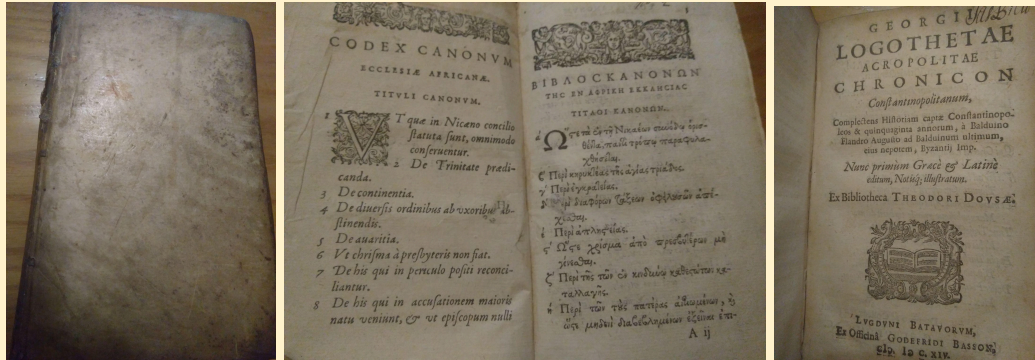 CODEX CANONVM
ECCLESIÆ AFRICANÆ.
TITVLI CANONVM.
1 VT quæ in Nicæno concilio
statuta sunt, omnimodo
conseruentur.
2 De Trinitate prædi-
canda.
3 De continentia.
4 De diuersis ordinibus ab vxoribus ab-
stinendis.
5 De auaritia.
6 Vt chrisma à presbyteris non fiat.
7 De his qui in periculo positi reconci-
liantur.
8 De his qui in accusationem maioris
natu veniunt, & vt episcopum nulli
ΒΙΒΛΟΣ ΚΑΝΟΝΩΝ
ΤΗΣ ΕΝ ΑΦΡΙΚΗ ΕΚΚΛΗΣΙΑΣ
ΤΙΤΛΟΙ ΚΑΝΟΝΩΝ.
φυλα-
χθῆναι.
Περὶ τῆς ἁγίας τριάδος.
Περὶ ἐγκρατείας.
Περὶ διαφόρων
Περὶ
Ὥστε χρίσμα ἀπὸ πρεσβυτέρων μὴ
γενέσθαι.
Περὶ τῶν κα-
ταλλαγῆς.
Περὶ τῶν
A ij
GEORGII
LOGOTHETAE
ACROPOLITAE
CHRONICON
Constantinopolitanum,
Complectens Historiam captæ Constantinopo-
leos & quinquaginta annorum, à Balduino
Flandro Augusto ad Balduinum ultimum,
eius nepotem, Byzantij Imp.
Nunc primùm Græcè & Latinè
editum, Notisq; illustratum.
Ex Bibliotheca THEODORI DOVSÆ.
LVGDVNI BATAVORVM,
Ex Officinâ GODEFRIDI BASSON,
CIↃ. IↃ C. XIV.